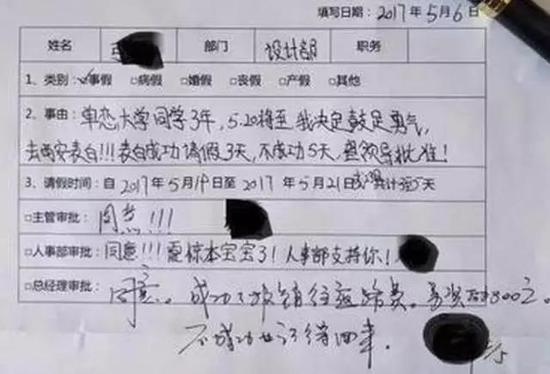 填写日期：2017年5月6日
姓名 部门 设计部 职务
1、类别：☑事假 □病假 □婚假 □丧假 □产假 □其他
2、事由：单恋大学同学3年，5.20将至我决定鼓足勇气，
去西安表白!!!表白成功请假3天，不成功5天，望领导批准！
3、请假时间：自2017年5月19日至2017年5月21日 共计3至5天
□主管审批：同意!!!
□人事部审批：同意!!!震惊本宝宝了！人事部支持你！
□总经理审批：同意。成功了报销往返路费。 800元。
不成功也记得回来。